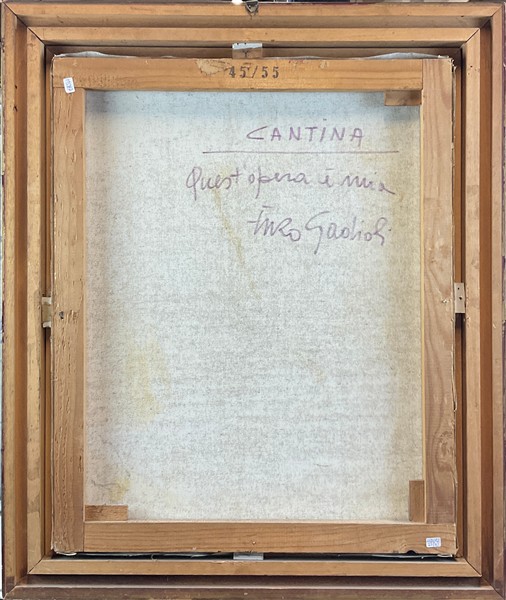 45/55
CANTINA
Quest'opera è mia
Enzo Gadioli